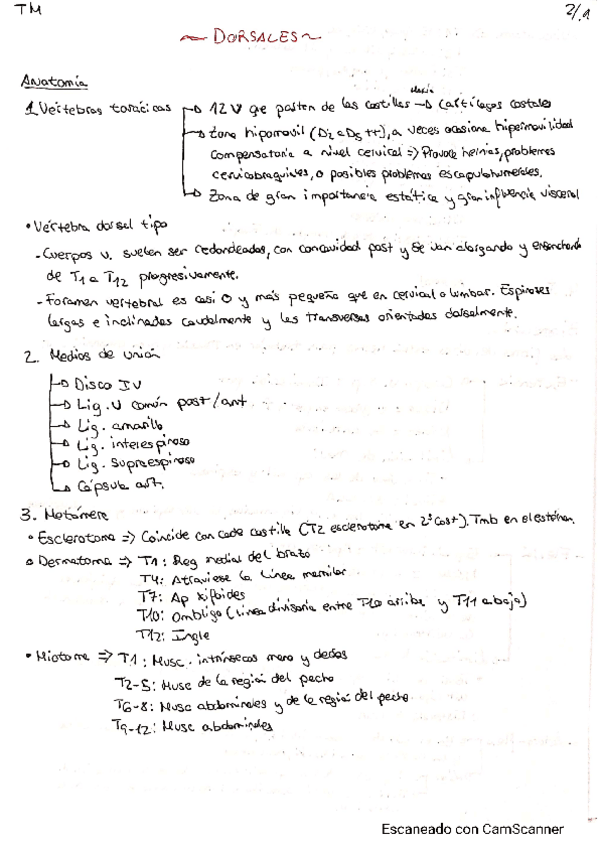 TM
2/1
~ DORSALES ~
Anatomía
1. Vertebras torácicas → 12 V que parten de las costillas → cartílagos costales
→ Zona hipomovil (D2 a D5 ++), a veces ocasiona hipermovilidad
compensatoria a nivel cervical => Provoca hernias, problemas
cervicobraquiales, o posibles problemas escapulohumerales.
→ Zona de gran importancia estática y gran influencia visceral
• Vértebra dorsal tipo
- Cuerpos v. suelen ser redondeados, con concavidad post y se van alargando y ensanchando
de T1 a T12 progresivamente.
- Foramen vertebral es casi O y más pequeño que en cervical o lumbar. Espinosas
largas e inclinadas caudalmente y las transversas orientadas dorsalmente.
2. Medios de unión
→ Disco IV
→ Lig. V común post/ant
→ Lig. amarillo
→ Lig. interespinoso
→ Lig. supraespinoso
→ Cápsula art.
3. Metámera
• Esclerotoma => Coincide con cada costilla (T2 esclerotoma en 2ª cost). Tmb en el esternón.
• Dermatoma => T1: Reg medial del brazo
T4: Atraviesa la línea mamilar
T7: Ap xifoides
T10: Ombligo (línea divisoria entre T10 arriba y T11 abajo)
T12: Ingle
• Miotoma => T1: Musc. intrínsecos mano y dedos
T2-5: Musc de la región del pecho
T6-8: Musc abdominales y de la región del pecho
T9-12: Musc abdominales
Escaneado con CamScanner